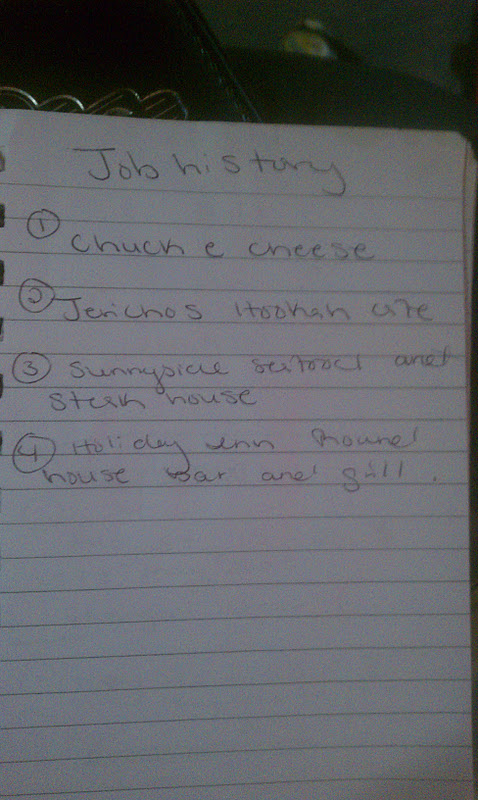 Job history
① Chuck e cheese
② Jerichos Hookah cafe
③ Sunnyside seafood and
steak house
④ Holiday inn Round
house bar and grill.